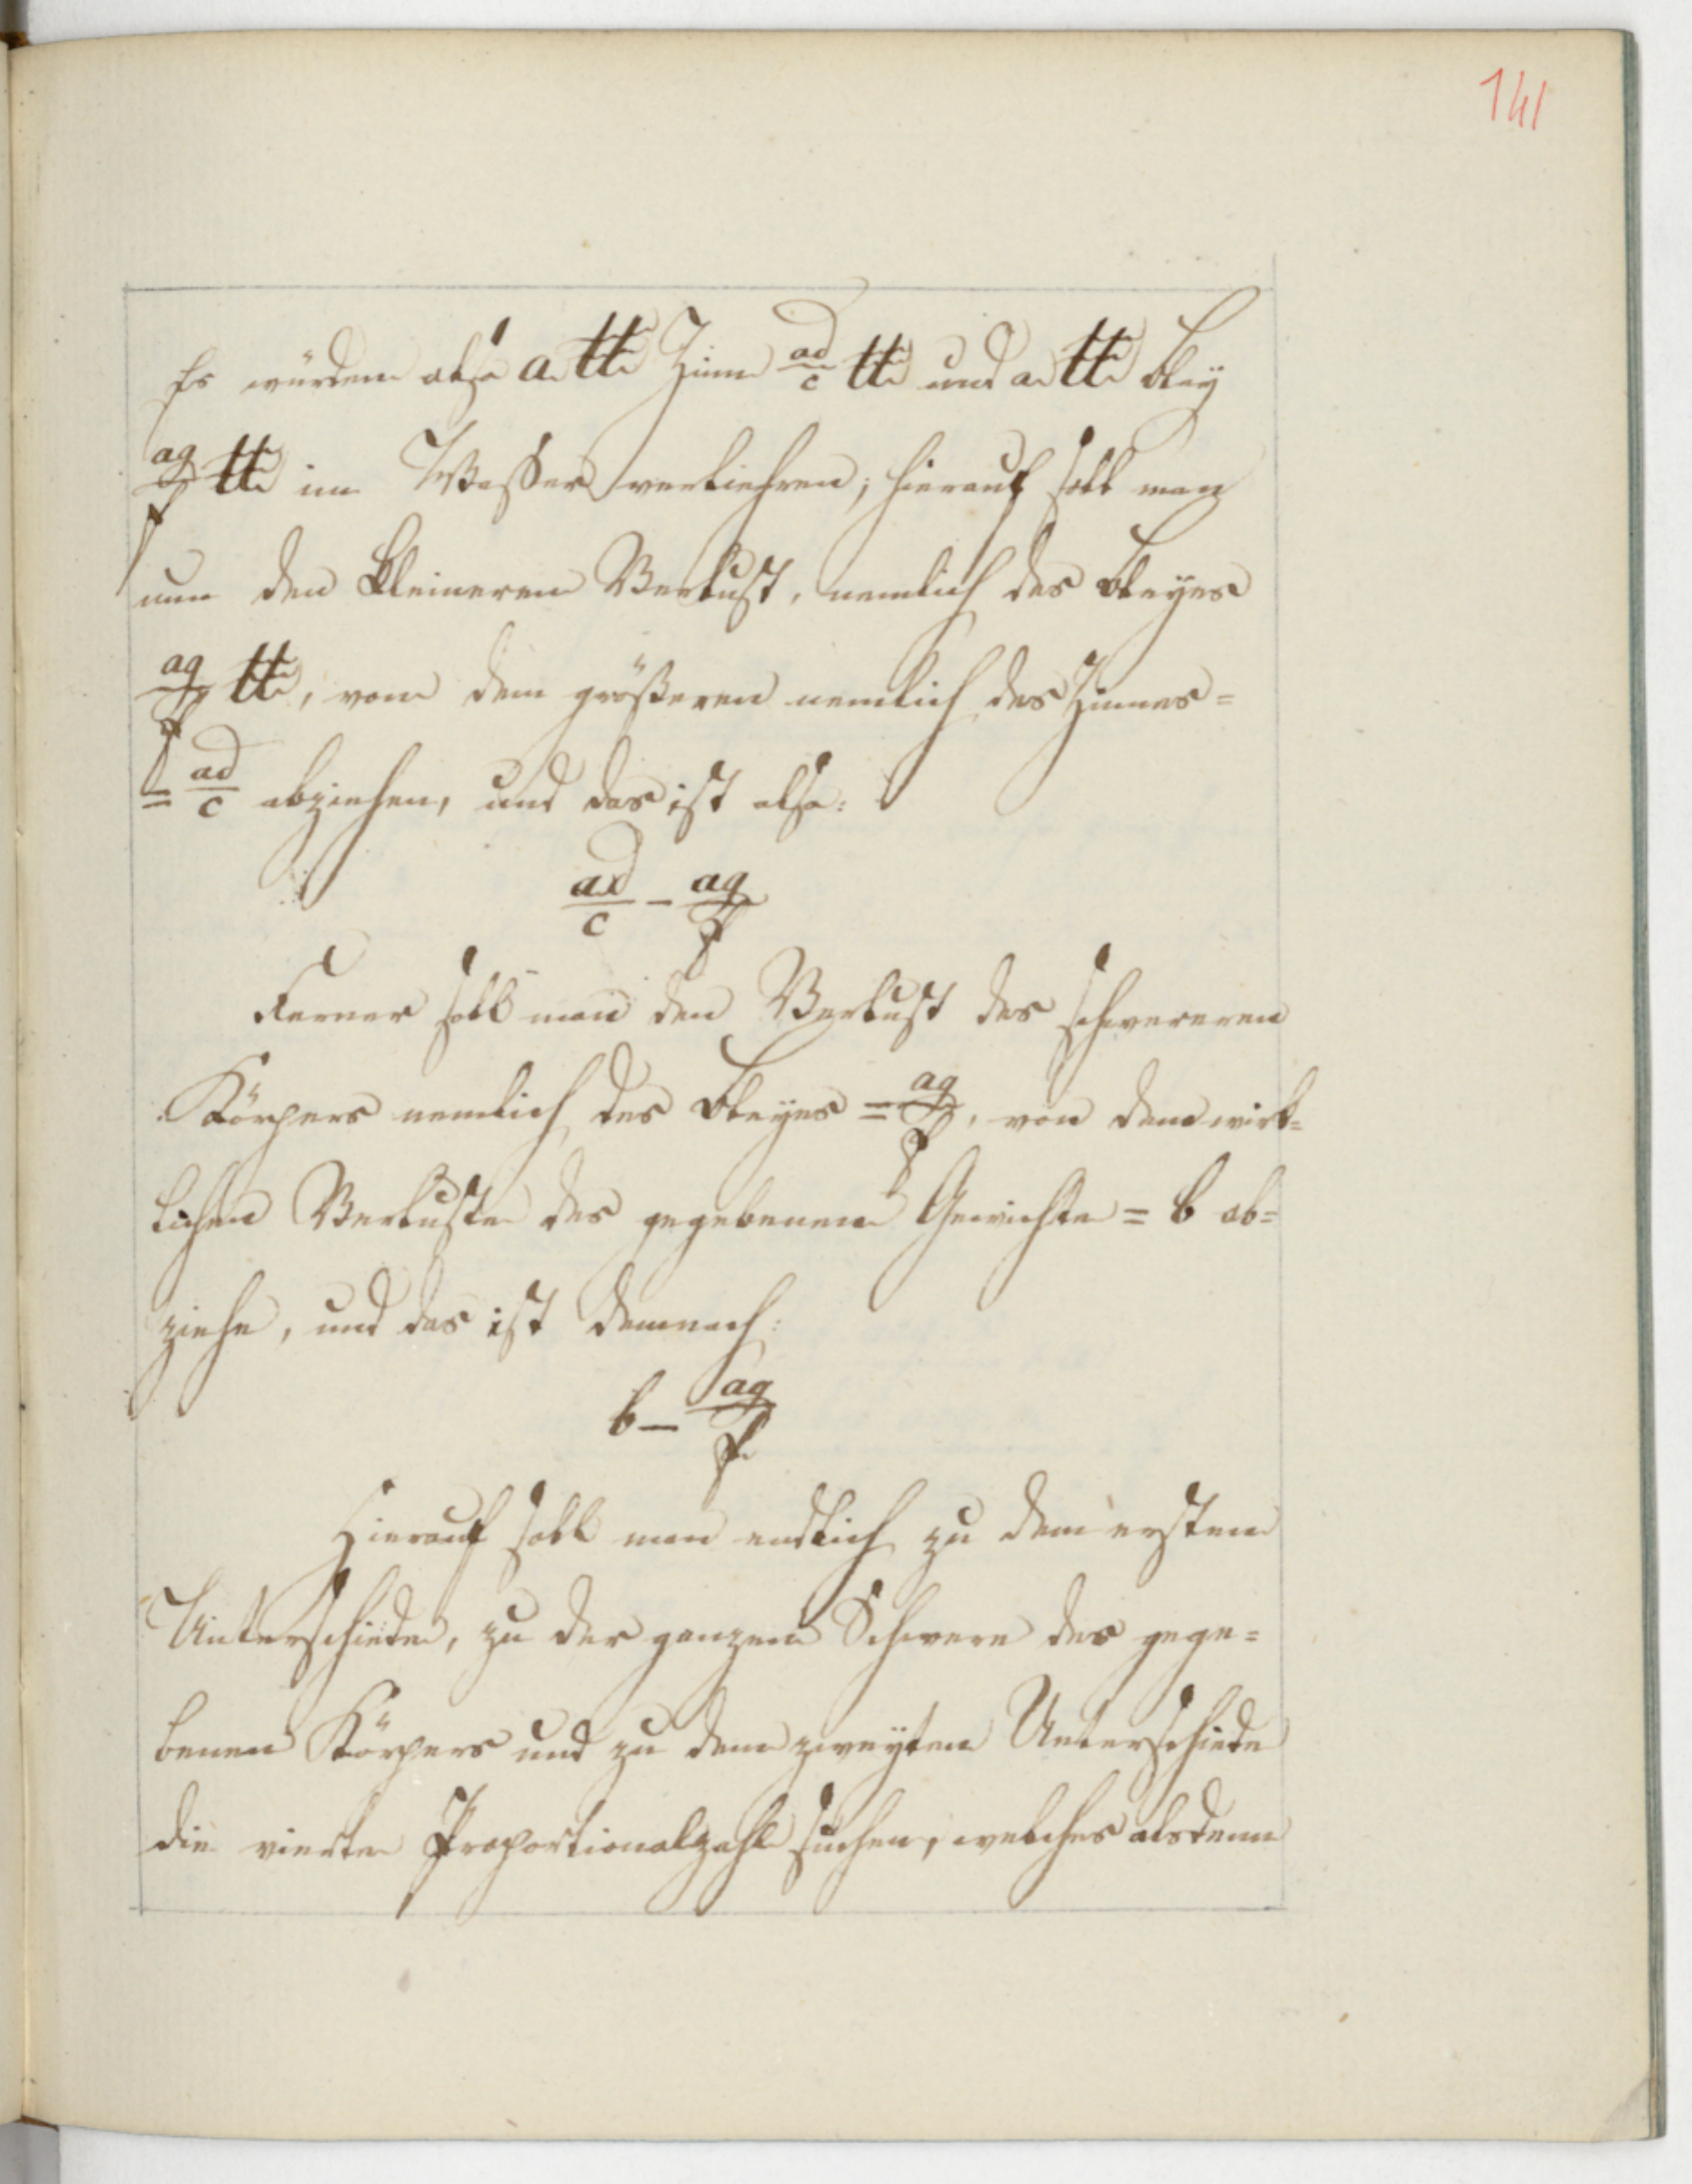 141
Es würden also a ℔ Zinn ad/c ℔ und a ℔ Bley
ag/f ℔ im Wasser verliehren; hierauf soll man
nun den kleineren Verlust, nemlich des Bleyes
ag/f ℔, von dem größeren nemlich des Zinnes =
= ad/c abziehen, und das ist also:
ad/c - ag/f
Ferner soll man den Verlust des schwereren
Körpers nemlich des Bleyes = ag/f, von dem wirk=
lichen Verluste des gegebenen Gewichte = b ab=
ziehe, und das ist demnach:
b - ag/f
Hierauf soll man endlich zu dem ersten
Unterschiede, zu der ganzen Schwere des gege=
benen Körpers und zu dem zweyten Unterschiede
die vierte Proportionalzahl suchen, welches alsdenn